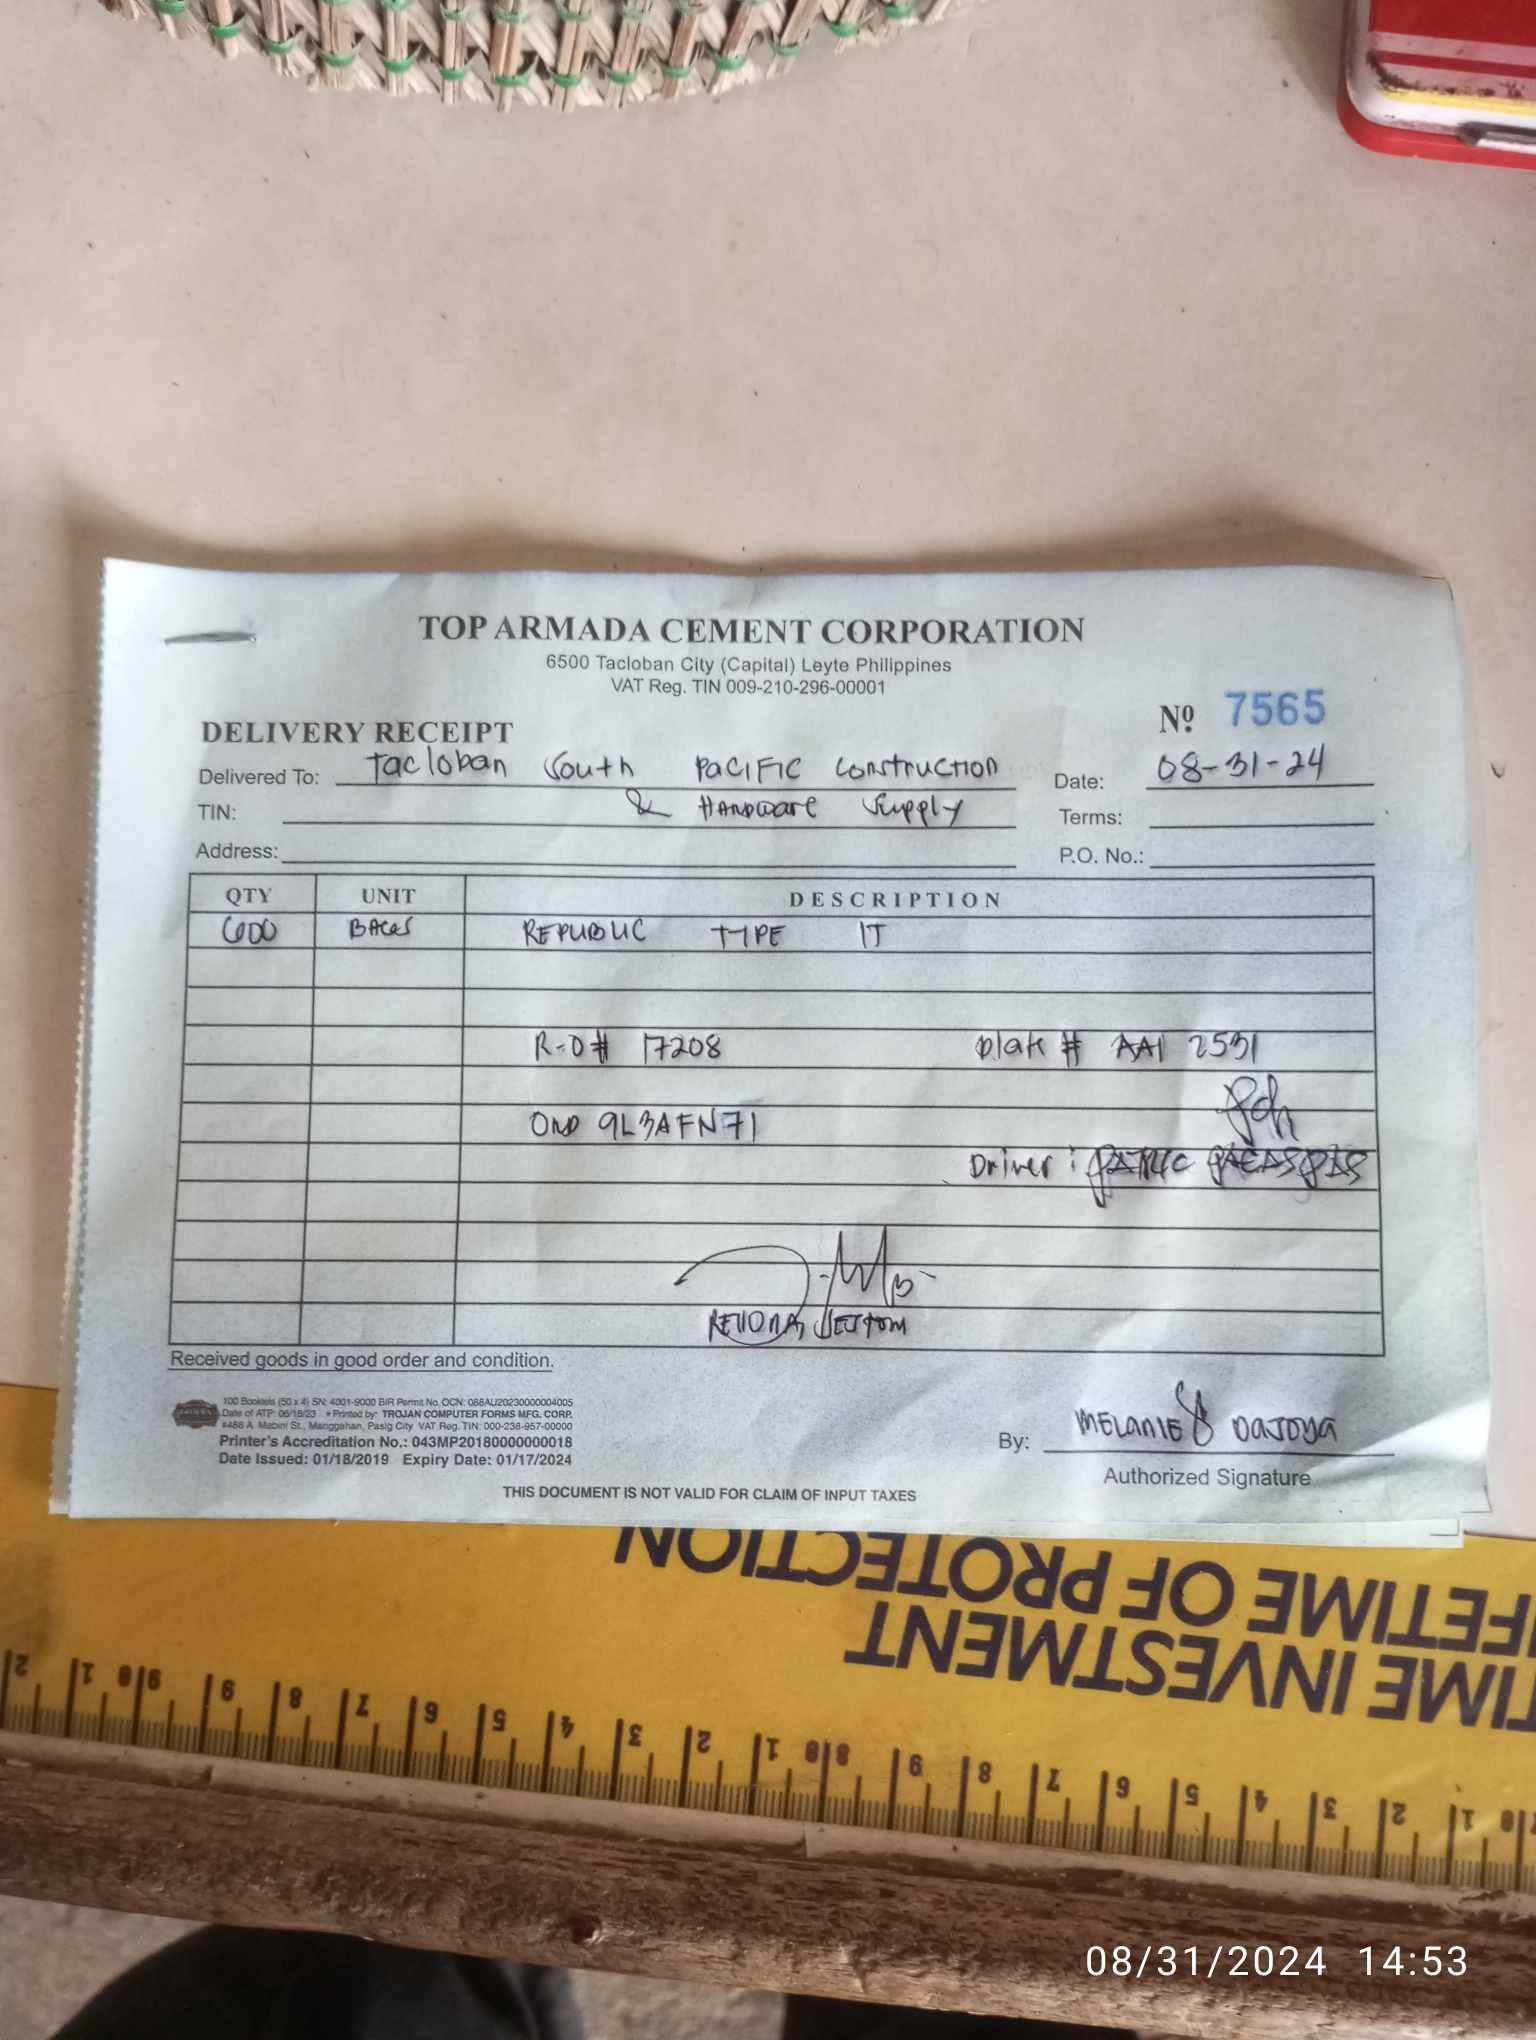 TOP ARMADA CEMENT CORPORATION
6500 Tacloban City (Capital) Leyte Philippines
VAT Reg. TIN 009-210-296-00001
Nº 7565
DELIVERY RECEIPT
Delivered To: Tacloban South Pacific Construction
Date: 08-31-24
TIN: & Hardware Supply
Terms:
Address:
P.O. No.:
QTY UNIT DESCRIPTION
600 BAGS REPUBLIC TYPE IT
R-O# 17208 Plate # AAI 2531
OND 9L3AFN71
Driver:
Received goods in good order and condition.
100 Booklets (50 x 4) SN: 4001-9000 BIR Permit No. OCN: 088AU20230000004005
Date of ATP: 06/16/23 * Printed by: TROJAN COMPUTER FORMS MFG. CORP.
#486 A. Mabini St., Manggahan, Pasig City VAT Reg. TIN: 000-238-957-00000
Printer's Accreditation No.: 043MP20180000000018
Date Issued: 01/18/2019 Expiry Date: 01/17/2024
By: MELANIE DAJOYA
Authorized Signature
THIS DOCUMENT IS NOT VALID FOR CLAIM OF INPUT TAXES
TIME INVESTMENT
FETIME OF PROTECTION
2 1 90 9 8 7 6 5 4 3 2 1 80 9 8 7 6 5 4 3 2 1
08/31/2024 14:53